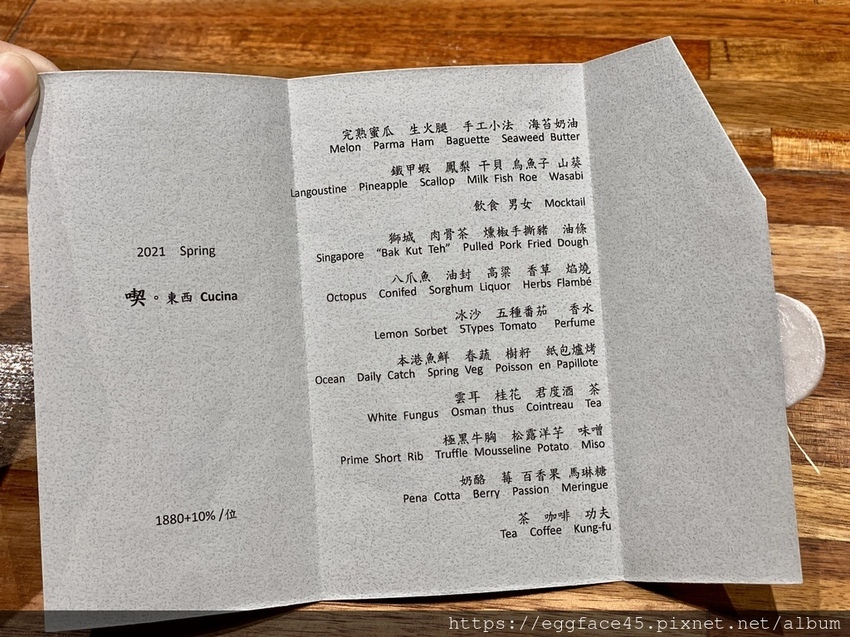 2021 Spring
喫。東西 Cucina
1880+10% /位
完熟蜜瓜 生火腿 手工小法 海苔奶油
Melon Parma Ham Baguette Seaweed Butter
鐵甲蝦 鳳梨 干貝 烏魚子 山葵
Langoustine Pineapple Scallop Milk Fish Roe Wasabi
飲食 男女 Mocktail
獅城 肉骨茶 燻椒手撕豬 油條
Singapore “Bak Kut Teh” Pulled Pork Fried Dough
八爪魚 油封 高粱 香草 焰燒
Octopus Conifed Sorghum Liquor Herbs Flambé
冰沙 五種番茄 香水
Lemon Sorbet 5Types Tomato Perfume
本港魚鮮 春蔬 樹籽 紙包爐烤
Ocean Daily Catch Spring Veg Poisson en Papillote
雲耳 桂花 君度酒 茶
White Fungus Osman thus Cointreau Tea
極黑牛胸 松露洋芋 味噌
Prime Short Rib Truffle Mousseline Potato Miso
奶酪 莓 百香果 馬琳糖
Pena Cotta Berry Passion Meringue
茶 咖啡 功夫
Tea Coffee Kung-fu
https://eggface45.pixnet.net/album